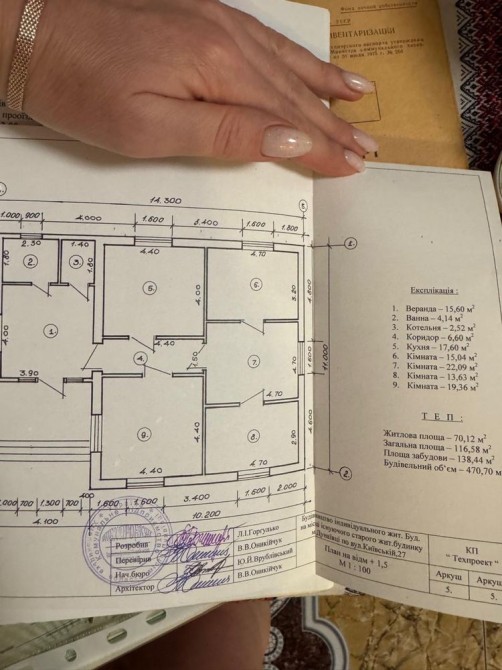 ІНВЕНТАРИЗАЦИИ
14.300
1.000 900 4.000 1.600 3.400 1.600 1.800
2.30 1.40 4.40 4.70
1.80 1.80
2. 3. 5. 6.
4.00 3.20
4.00 1. 4.40 4. 1.50 7. 4.70
3.90 4.70
4.40 9. 8. 2.90
4.40 4.70
1.
4.800
1.600 11.000
4.600
2.
700 1.300 700 400 1.600 1.600 3.400 1.600 2.000
4.100 10.200
Експлікація :
1. Веранда – 15,60 м²
2. Ванна – 4,14 м²
3. Котельня – 2,52 м²
4. Коридор – 6,60 м²
5. Кухня – 17,60 м²
6. Кімната – 15,04 м²
7. Кімната – 22,09 м²
8. Кімната – 13,63 м²
9. Кімната – 19,36 м²
Т Е П :
Житлова площа – 70,12 м²
Загальна площа – 116,58 м²
Площа забудови – 138,44 м²
Будівельний об’єм – 470,70 м
Розробив Л.І.Горгулько
Перевірив В.В.Оникійчук
Нач.бюро Ю.Й.Врублівський
Архітектор В.В.Оникійчук
Будівництво індивідуального жит. Буд.
на місці існуючого старого жит.будинку
по вул.Київській,27
План на відм + 1,5
М 1 : 100
КП
" Техпроект "
Аркуш Аркуш
5. 5.